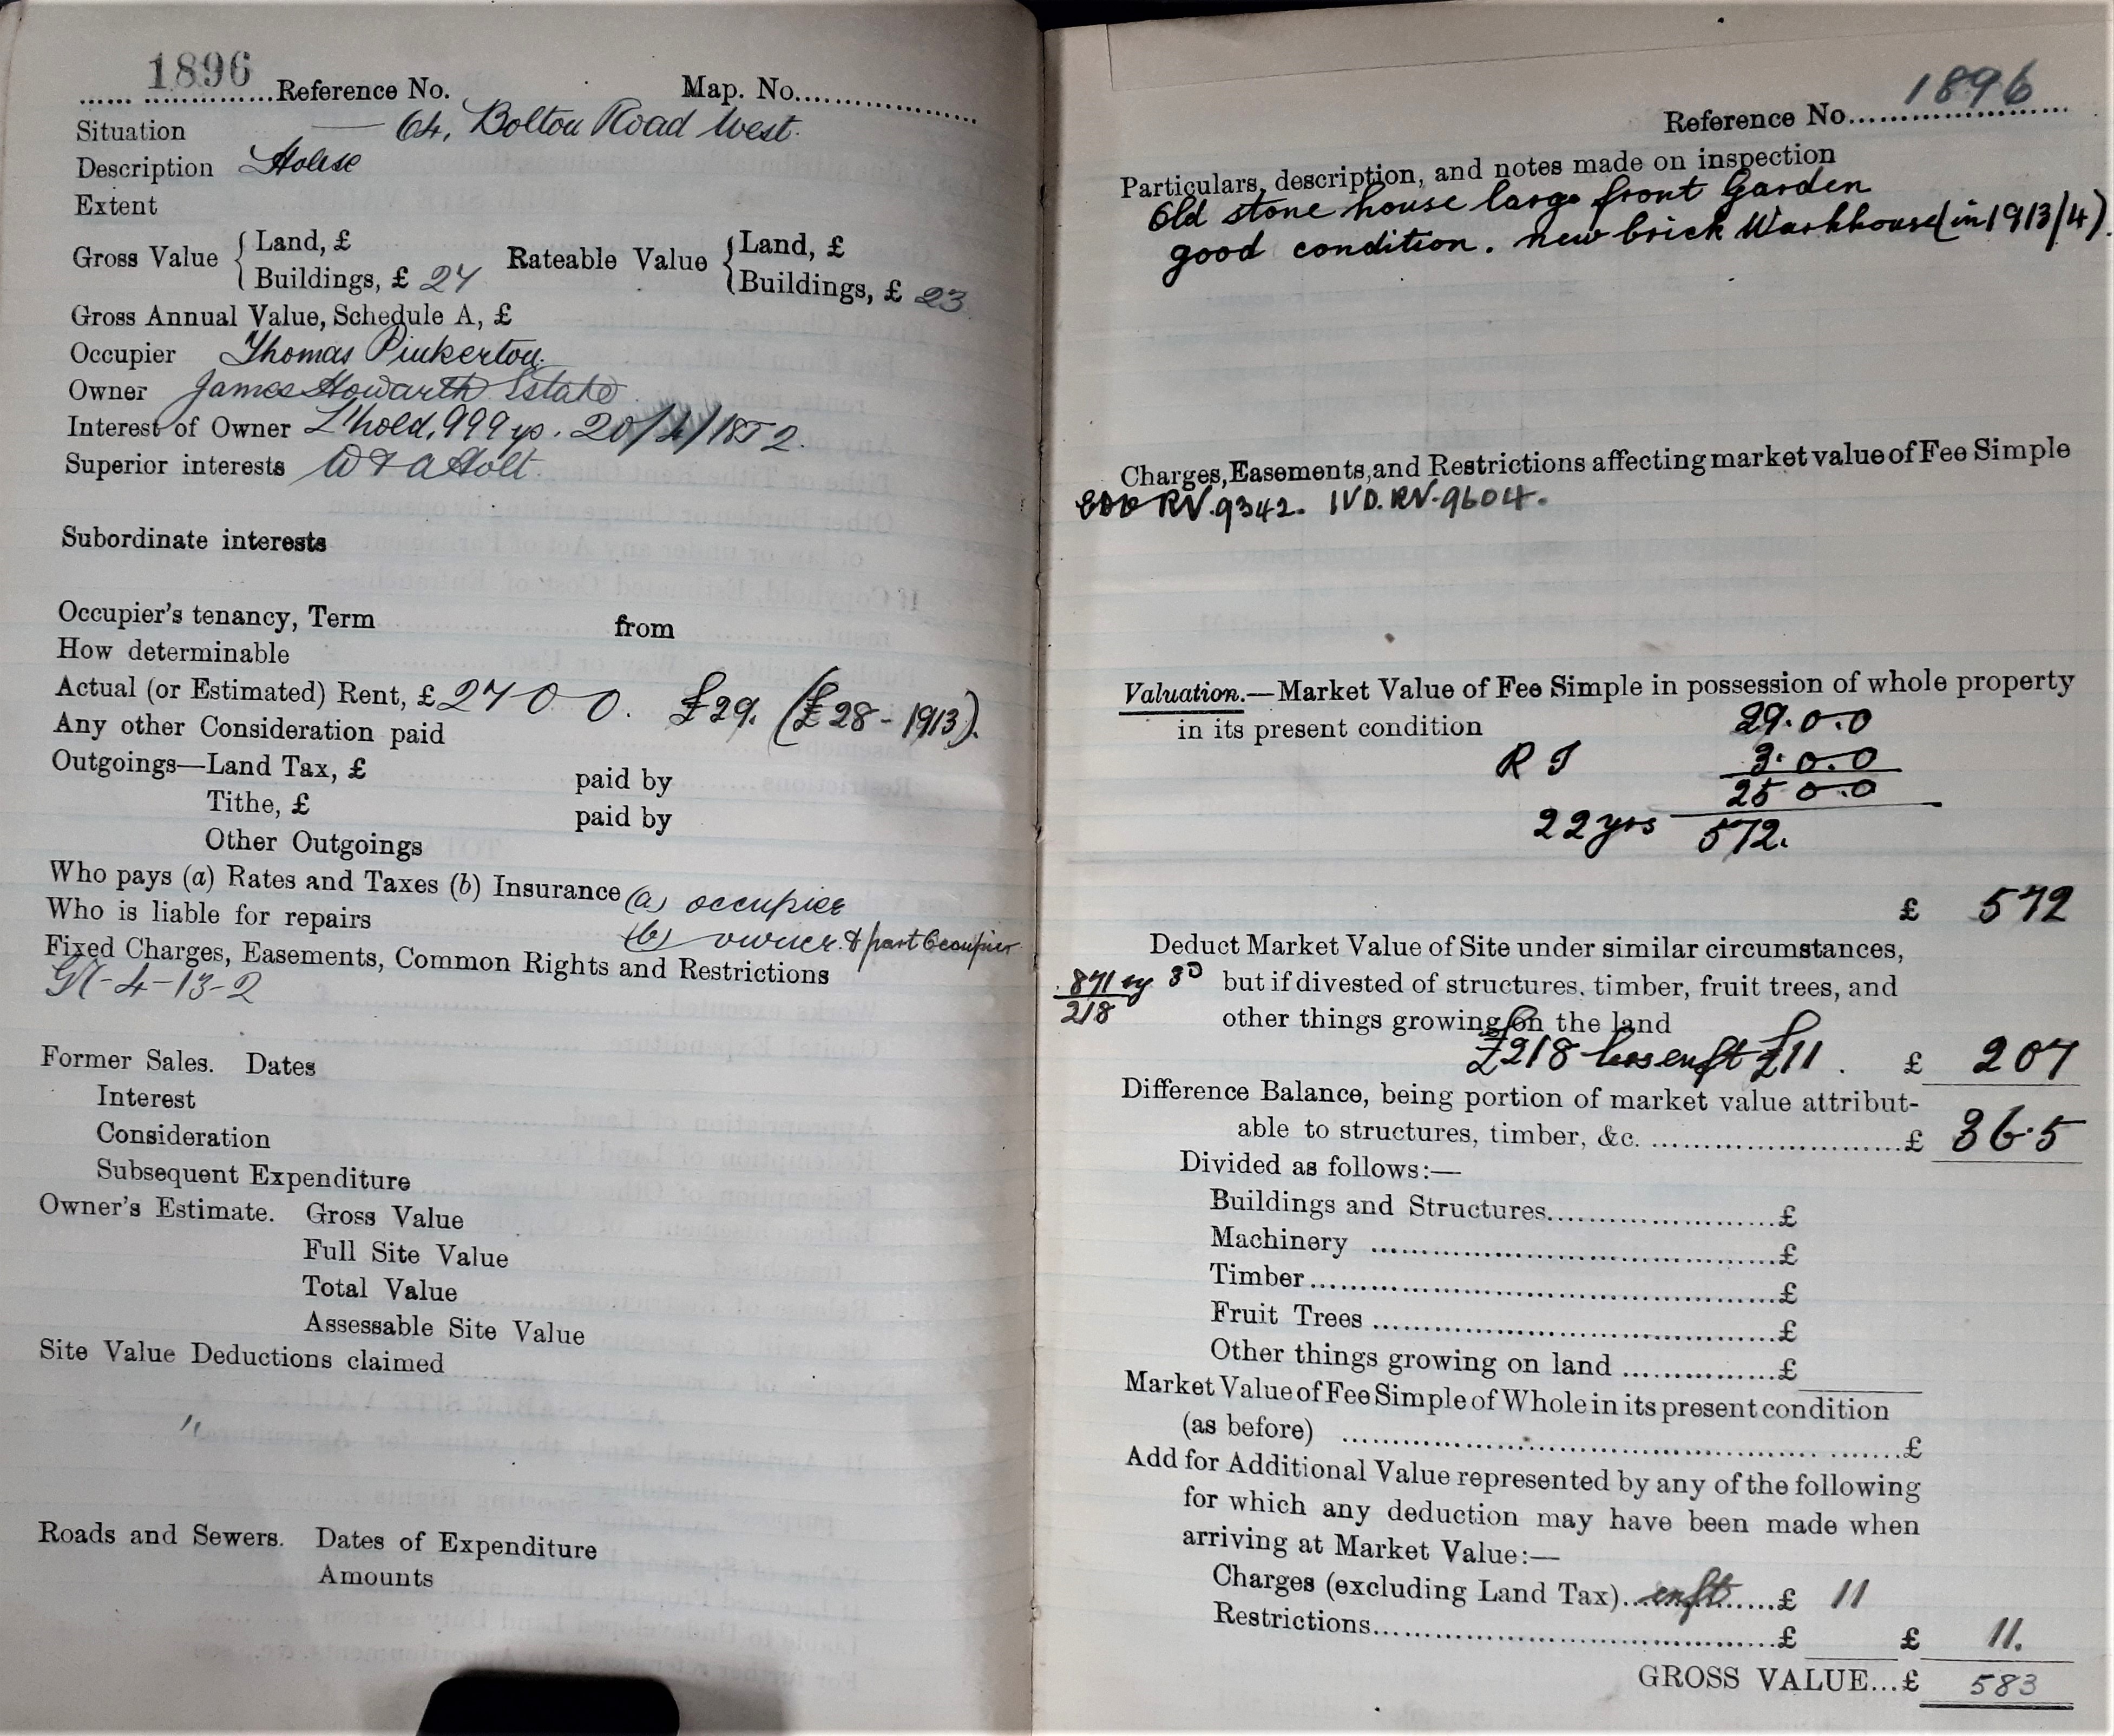 1896 Reference No. Map. No.
Situation — 64, Bolton Road West.
Description House
Extent
Gross Value { Land, £ Rateable Value { Land, £
Buildings, £ 27 Buildings, £ 23
Gross Annual Value, Schedule A, £
Occupier Thomas Pinkerton.
Owner James Howarth Estate
Interest of Owner L'hold, 999 ys. 20/4/1852.
Superior interests W & A Holt.
Subordinate interests
Occupier's tenancy, Term from
How determinable
Actual (or Estimated) Rent, £ 27 0 0. £29. (£28 - 1913).
Any other Consideration paid
Outgoings—Land Tax, £ paid by
Tithe, £ paid by
Other Outgoings
Who pays (a) Rates and Taxes (b) Insurance (a) occupier
Who is liable for repairs (b) owner & part Occupier
Fixed Charges, Easements, Common Rights and Restrictions
GR-4-13-2
Former Sales. Dates
Interest
Consideration
Subsequent Expenditure
Owner's Estimate. Gross Value
Full Site Value
Total Value
Assessable Site Value
Site Value Deductions claimed
"
Roads and Sewers. Dates of Expenditure
Amounts
Reference No. 1896
Particulars, description, and notes made on inspection
Old stone house large front Garden
good condition. new brick Washhouse (in 1913/4).
Charges, Easements, and Restrictions affecting market value of Fee Simple
RV.9342. IVD.RV.9604.
Valuation.—Market Value of Fee Simple in possession of whole property
in its present condition 29.0.0
R I 3.0.0
25 0.0
22 yrs 572.
£ 572
Deduct Market Value of Site under similar circumstances,
871 sy 3D but if divested of structures, timber, fruit trees, and
218 other things growing on the land
£218 less enft £11. £ 207
Difference Balance, being portion of market value attribut-
able to structures, timber, &c. £ 365
Divided as follows:—
Buildings and Structures £
Machinery £
Timber £
Fruit Trees £
Other things growing on land £
Market Value of Fee Simple of Whole in its present condition
(as before) £
Add for Additional Value represented by any of the following
for which any deduction may have been made when
arriving at Market Value:—
Charges (excluding Land Tax) enft £ 11
Restrictions £ £ 11.
GROSS VALUE...£ 583